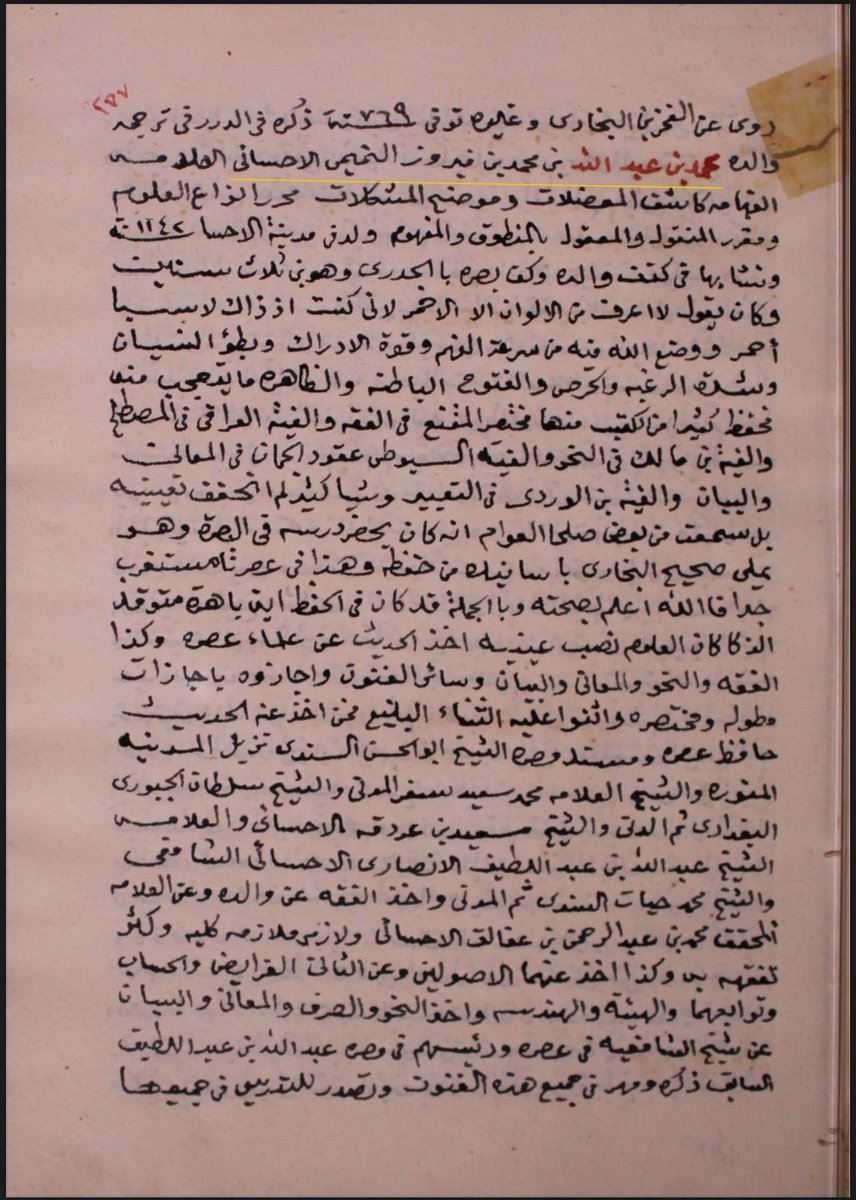 ٢٥٧
روى عن الفخر بن البخارى وغيره توفى سنة ٧٦٩ ذكره فى الدرر فى ترجمة
والده محمد بن عبد الله بن محمد بن فيروز التميمى الاحسائى العلامه
الفهامه كاشف المعضلات وموضح المشكلات محرر انواع العلوم
ومقرر المنقول والمعقول بالمنطوق والمفهوم ولد فى مدينة الاحسا سنة ١١٤٢
ونشا بها فى كنف والده وكف بصره بالجدرى وهو بن ثلاث سنين
وكان يقول لا اعرف من الالوان الا الاحمر لانى كنت اذ ذاك لابسا
أحمر ووضع الله فيه من سرعة الفهم وقوة الادراك وبطؤ النسيان
وشدة الرغبه والحرص والفتوح الباطنه والظاهره ما يتعجب منه
فحفظ كثيرا من الكتب منها مختصر المقنع فى الفقه والفية العراقى فى المصطلح
والفية بن مالك فى النحو والفيه السيوطى عقود الجمان فى المعانى
والبيان والفية بن الوردى فى التعبير وشيا كثير لم اتحقق تعيينه
بل سمعت من بعض صلحا العوام انه كان يحضر درسه فى البصرة وهو
يملى صحيح البخارى باسانيده من حفظه وهذا فى عصرنا مستغرب
جدا فالله اعلم بصحته وبالجملة فلقد كان فى الحفظ اية باهرة متوقد
الذكا كان العلوم نصب عينيه اخذ الحديث عن علماء عصره وكذا
الفقه والنحو والمعانى والبيان وسائر الفنون واجازوه باجازات
مطوله ومختصره واثنوا عليه الثناء البليغ فمن اخذ عنه الحديث
حافظ عصره ومسند مصره الشيخ ابو الحسن السندى نزيل المدينه
المنوره والشيخ العلامه محمد سعيد سفر المدنى والشيخ سلطان الجبورى
البغدادى ثم المدنى والشيخ سعيد بن عردقه الاحسائى والعلامه
الشيخ عبد الله بن عبد اللطيف الانصارى الاحسائى الشافعى
والشيخ محمد حيات السندى ثم المدنى واخذ الفقه عن والده وعن العلامه
المحقق محمد بن عبد الرحمن بن عفالق الاحسائى ولازمه ملازمه كليه وكثر
تفقهه به وكذا اخذ عنهما الاصولين وعن الثانى الفرايض والحساب
وتوابعهما والهيئه والهندسه واخذ النحو والصرف والمعانى والبيان
عن شيخ الشافعيه فى عصره ورئيسهم فى مصره عبد الله بن عبد اللطيف
السابق ذكره ومهر فى جميع هذه الفنون وتصدر للتدريس فى جميعها